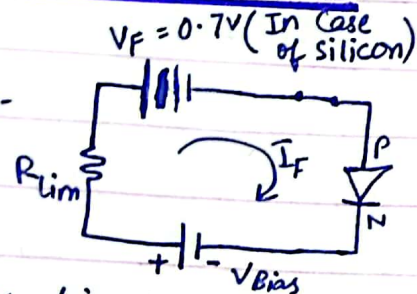 VF = 0.7V (In Case
of silicon)
P
IF
Rlim
N
+ - VBias